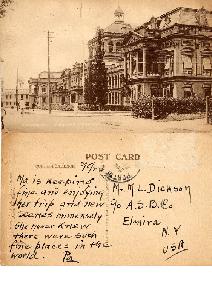 POST CARD
7/9rd
Ma is keeping
fine and enjoying
her trip and new
scenes immensely
she never knew
there were such
fine places in the
world. Pa
Mr M L Dickson
c/o A. S. B. Co
Elmira
N.Y
USA